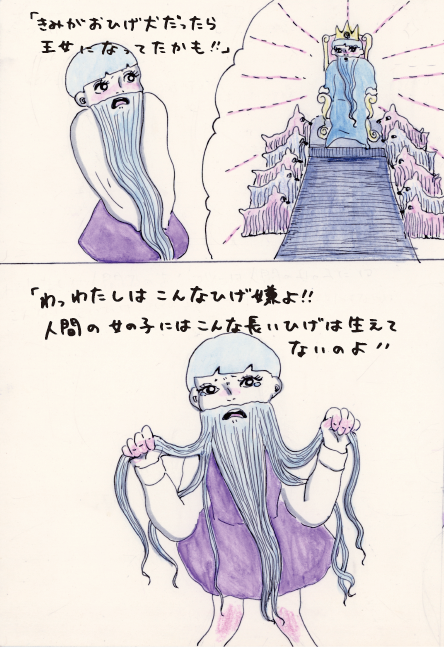 「きみがおひげ犬だったら
王女になってたかも!!」
「わっわたしはこんなひげ嫌よ!!
人間の女の子にはこんな長いひげは生えて
ないのよ!!